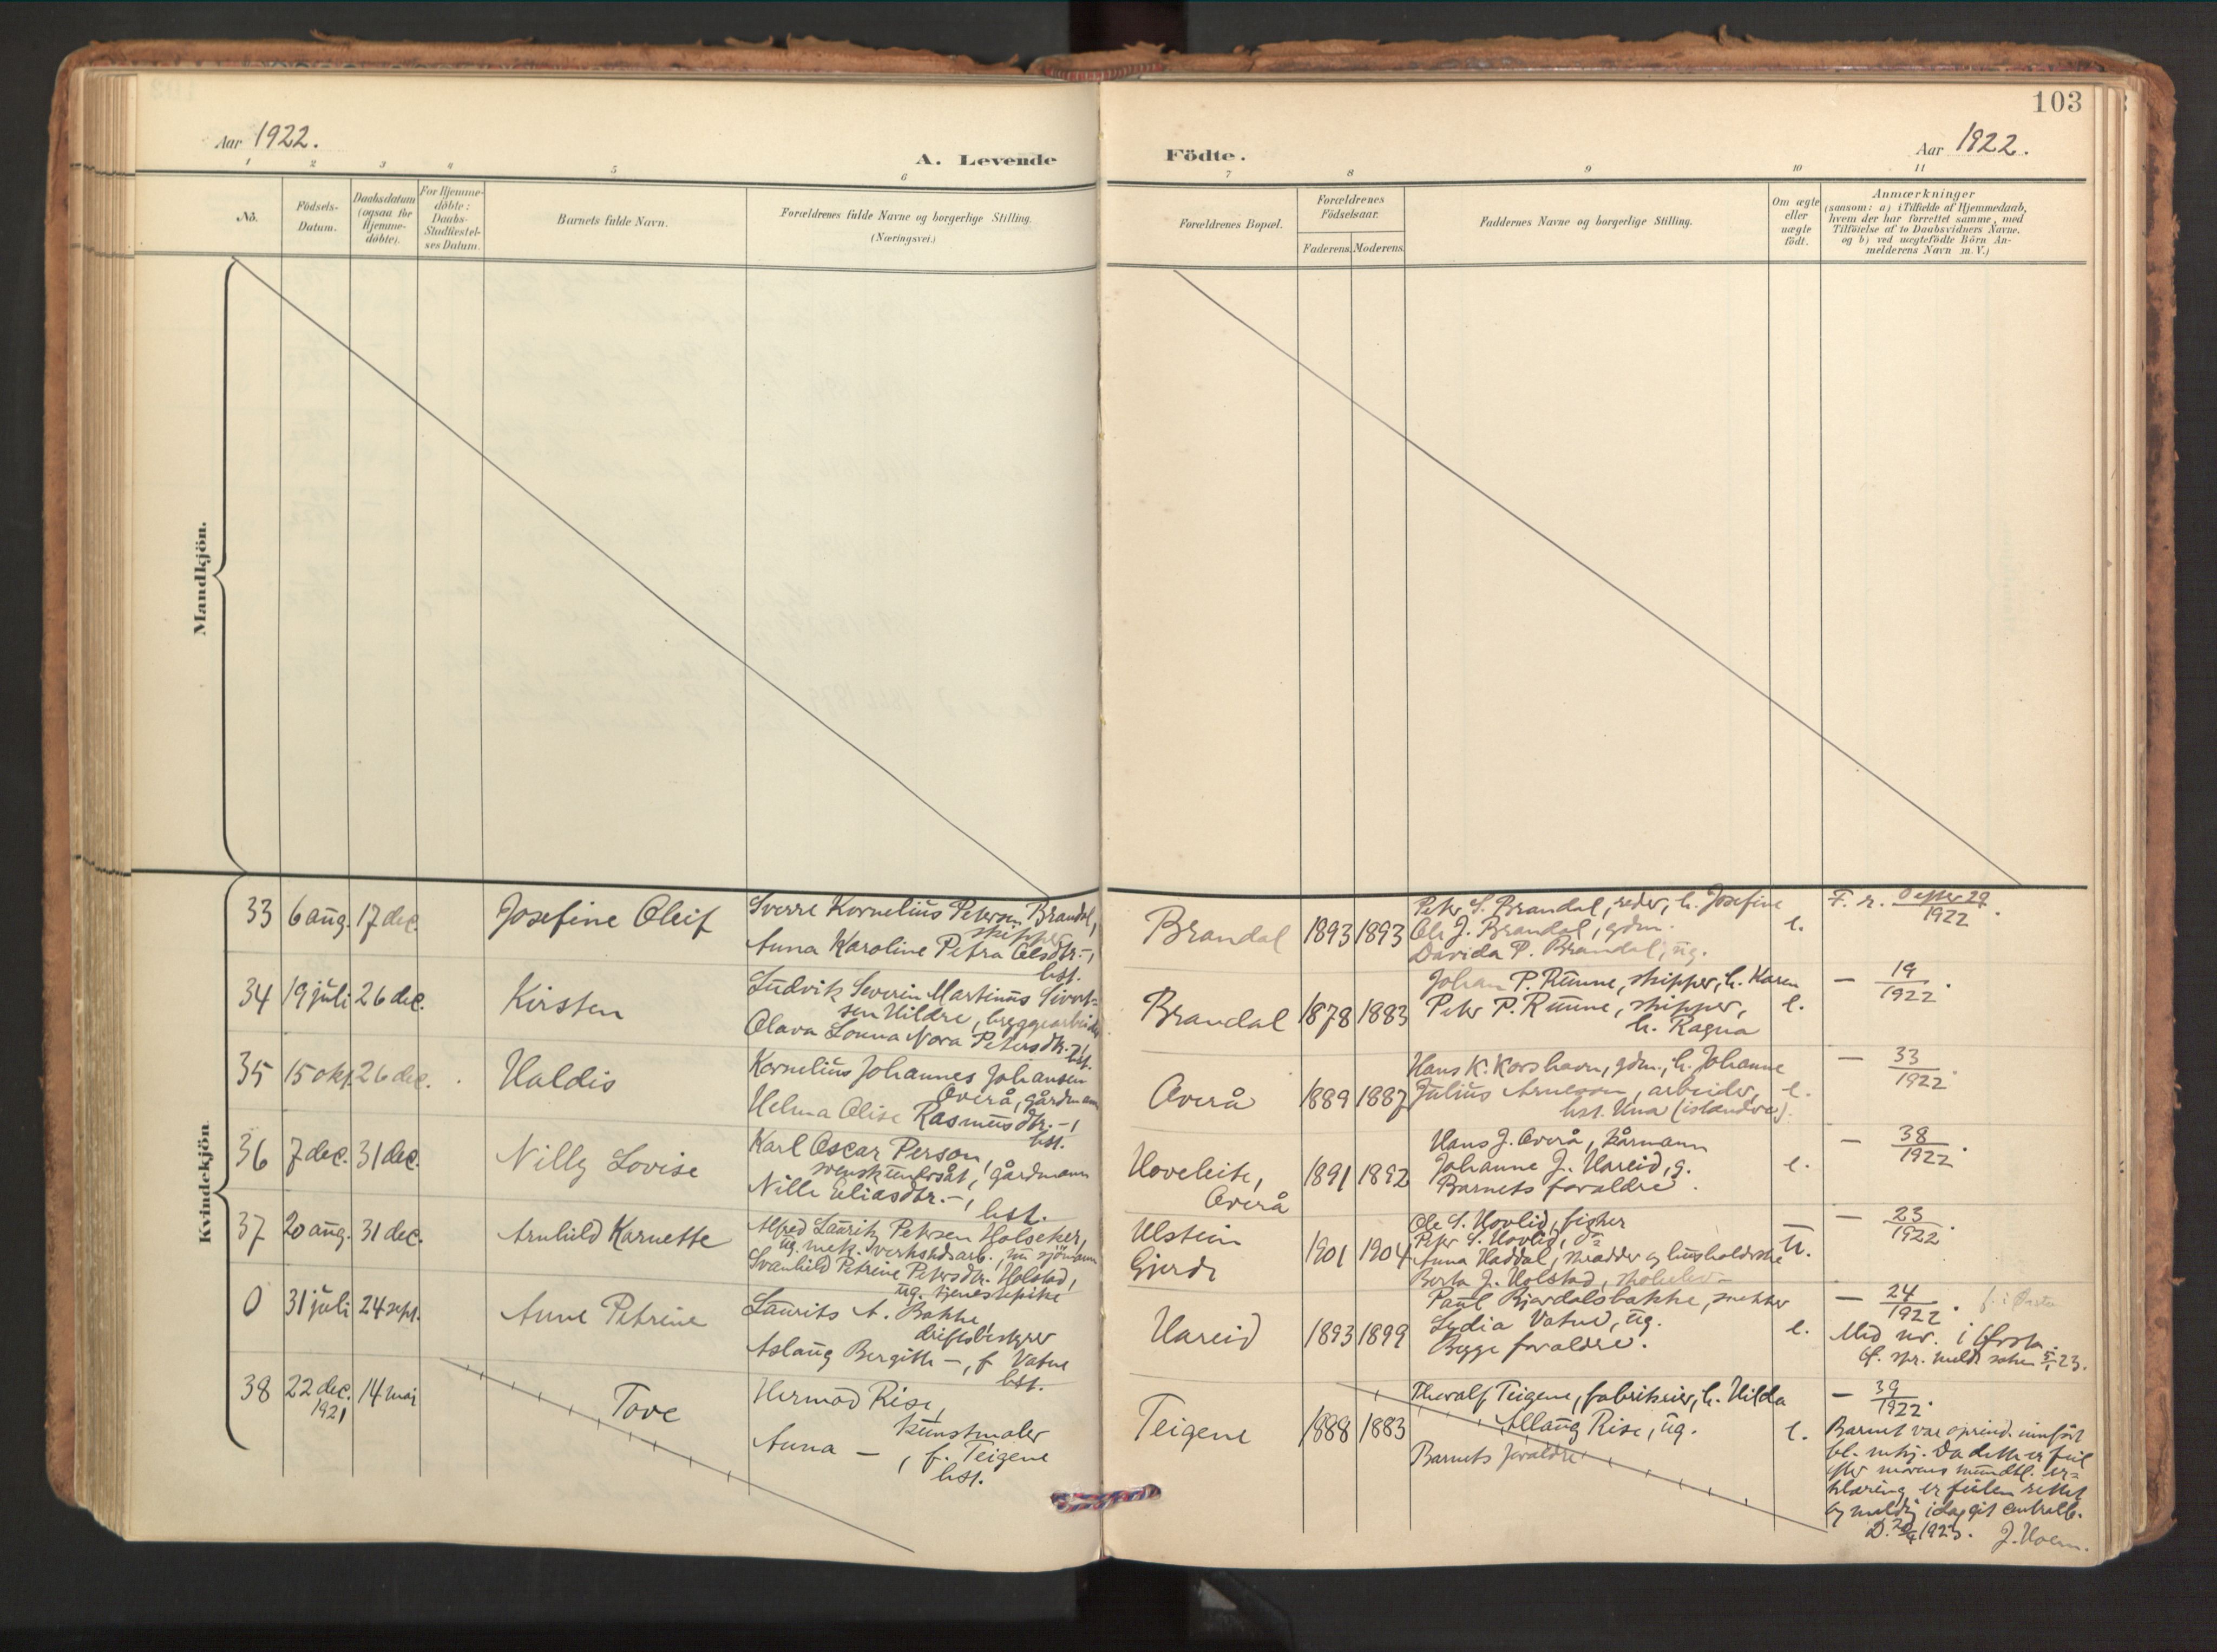 103
Aar 1922.
A. Levende
Födte.
Aar 1922.
1 2 3 4 5 6 7 8 9 10 11
Nö.
Födsels-
Datum.
Daabsdatum
(ogsaa for
Hjemme-
döbte).
For Hjemme-
döbte:
Daabs-
Stadfæstel-
ses Datum.
Barnets fulde Navn.
Forældrenes fulde Navne og borgerlige Stilling.
(Næringsvei.)
Forældrenes Bopæl.
Forældrenes
Födselsaar.
Faderens. Moderens.
Faddernes Navne og borgerlige Stilling.
Om ægte
eller
uægte
födt.
Anmærkninger
(saasom: a) i Tilfælde af Hjemmedaab,
hvem der har forrettet samme, med
Tilföielse af to Daabsvidners Navne.
og b) ved uægtefödte Börn An-
melderens Navn m. V.)
Mandkjön.
Kvindekjön.
33 6 aug. 17 dec.
Josefine Oleif
Sverre Kornelius Petersen Brandal,
skipper
Anna Karoline Petra Olsdtr. -,
hst.
Brandal
1893 1893
Peter S. Brandal, reder, h. Josefine
Ole J. Brandal, gdm.
Davida P. Brandal, ug.
e.
F. r. 0 efter 29
1922.
34 19 juli 26 dec.
Kirsten
Ludvik Severin Martinus Sivert-
sen Hildre, bryggearbeider
Olava Lovina Nora Petersdtr. -,
hst.
Brandal
1878 1883
Johan P. Runne, skipper, h. Karen
Peter P. Runne, skipper,
h. Ragna
e.
— 19
1922.
35 15 okt. 26 dec.
Haldis
Kornelius Johannes Johansen
Overå, gårdmann
Helma Olise Rasmusdtr. -,
hst.
Overå
1889 1887
Hans K. Korshavn, gdm., h. Johanne
Julius Arneson, arbeider,
hst. Una (islandsk).
e.
— 33
1922.
36 7 dec. 31 dec.
Nilly Lovise
Karl Oscar Person,
svensk undersåt, gårdmann
Nille Eliasdtr. -,
hst.
Hoveleite,
Overå
1891 1892
Hans J. Overå, kårmann
Johanne J. Hareid, g.
Barnets forældre.
e.
— 38
1922.
37 20 aug. 31 dec.
Arnhild Karnette
Alfred Lauritz Petersen Holseker,
ug. mek. verkstedsarb., nu sjömann
Svanhild Petrine Petersdtr. Holstad,
ug. tjenestepike
Ulstein
Gjerde
1901 1904
Ole S. Hovlid, fisker
Peter S. Hovlid, do
Anna Haddal, skrædder og husholderske
Berta J. Holstad, skoleelev
u.
— 23
1922.
0 31 juli 24 sept.
Anne Petrine
Laurits A. Bakke,
driftsbestyrer
Aslaug Bergitte -, f. Vatne
hst.
Hareid
1893 1899
Paul Bjørdalsbakke, snekker
Lydia Vatne, ug.
Begge forældre.
e.
— 24
1922. f. i Ørsta
Med nr. i Ørsta.
38 22 dec. 14 mai
1921
Tove
Hermod Rise,
kunstmaler
Anna -, f. Teigene
hst.
Teigene
1888 1883
Thoralf Teigene, fabrikeier, h. Hilda
Allaug Rise, ug.
Barnets forældre
e.
— 39
1922.
Barnet var oprind. innført
bl. mkj. Da dette er feil
efter morens mundtl. er-
klæring er feilen rettet
og melding idag git centralb.
1923. J. Holm.